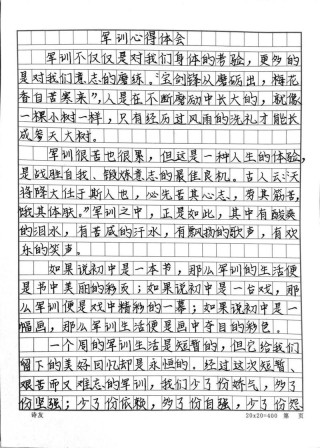 军训心得体会
军训不仅仅是对我们身体的考验，更多的
是对我们意志的磨练。“宝剑锋从磨砺出，梅花
香自苦寒来”，人是在不断磨励中长大的，就像
一棵小树一样，只有经历过风雨的洗礼才能长
成参天大树。
军训很苦也很累，但这是一种人生的体验，
是战胜自我、锻炼意志的最佳良机。古人云“天
将降大任于斯人也，必先苦其心志，劳其筋苦，
饿其体肤。”军训之中，正是如此，其中有酸爽
的泪水，有苦咸的汗水，有飘扬的歌声，有欢
乐的笑声。
如果说初中是一本书，那么军训的生活便
是书中美丽的彩页；如果说初中是一台戏，那
么军训便是戏中精彩的一幕；如果说初中是一
幅画，那么军训生活便是画中夺目的彩色。
一个周的军训生活是短暂的，但它给我们
留下的美好回忆却是永恒的。经过这次短暂、
艰苦而又难忘的军训，我们少了份娇气，多了
份坚强；少了份依赖，多了份自强，少了份怨
诗友 20x20=400 第 页